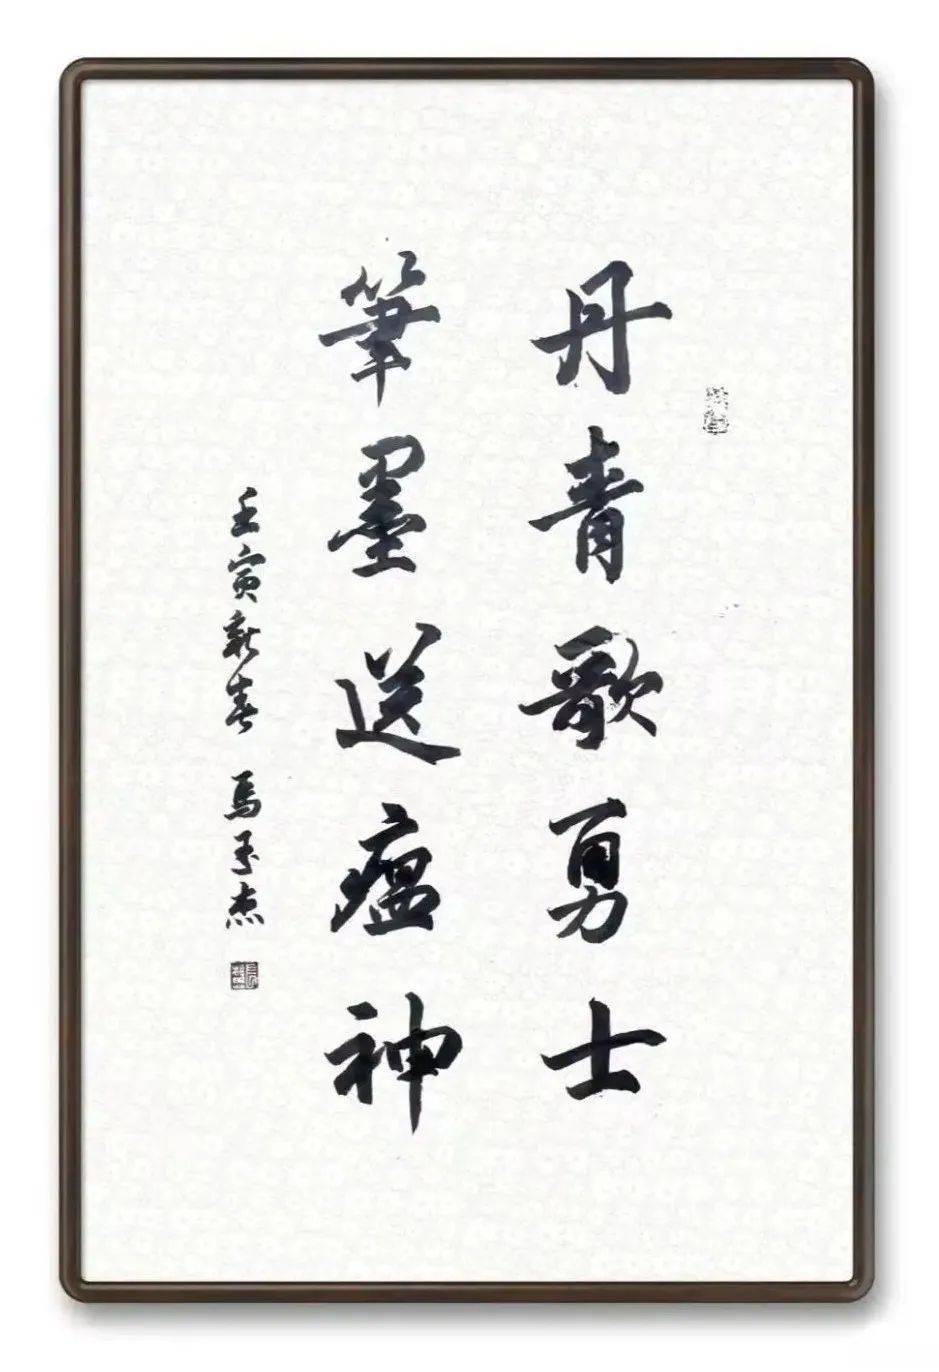 丹青歌勇士
筆墨送瘟神
壬寅新春 馬玉杰